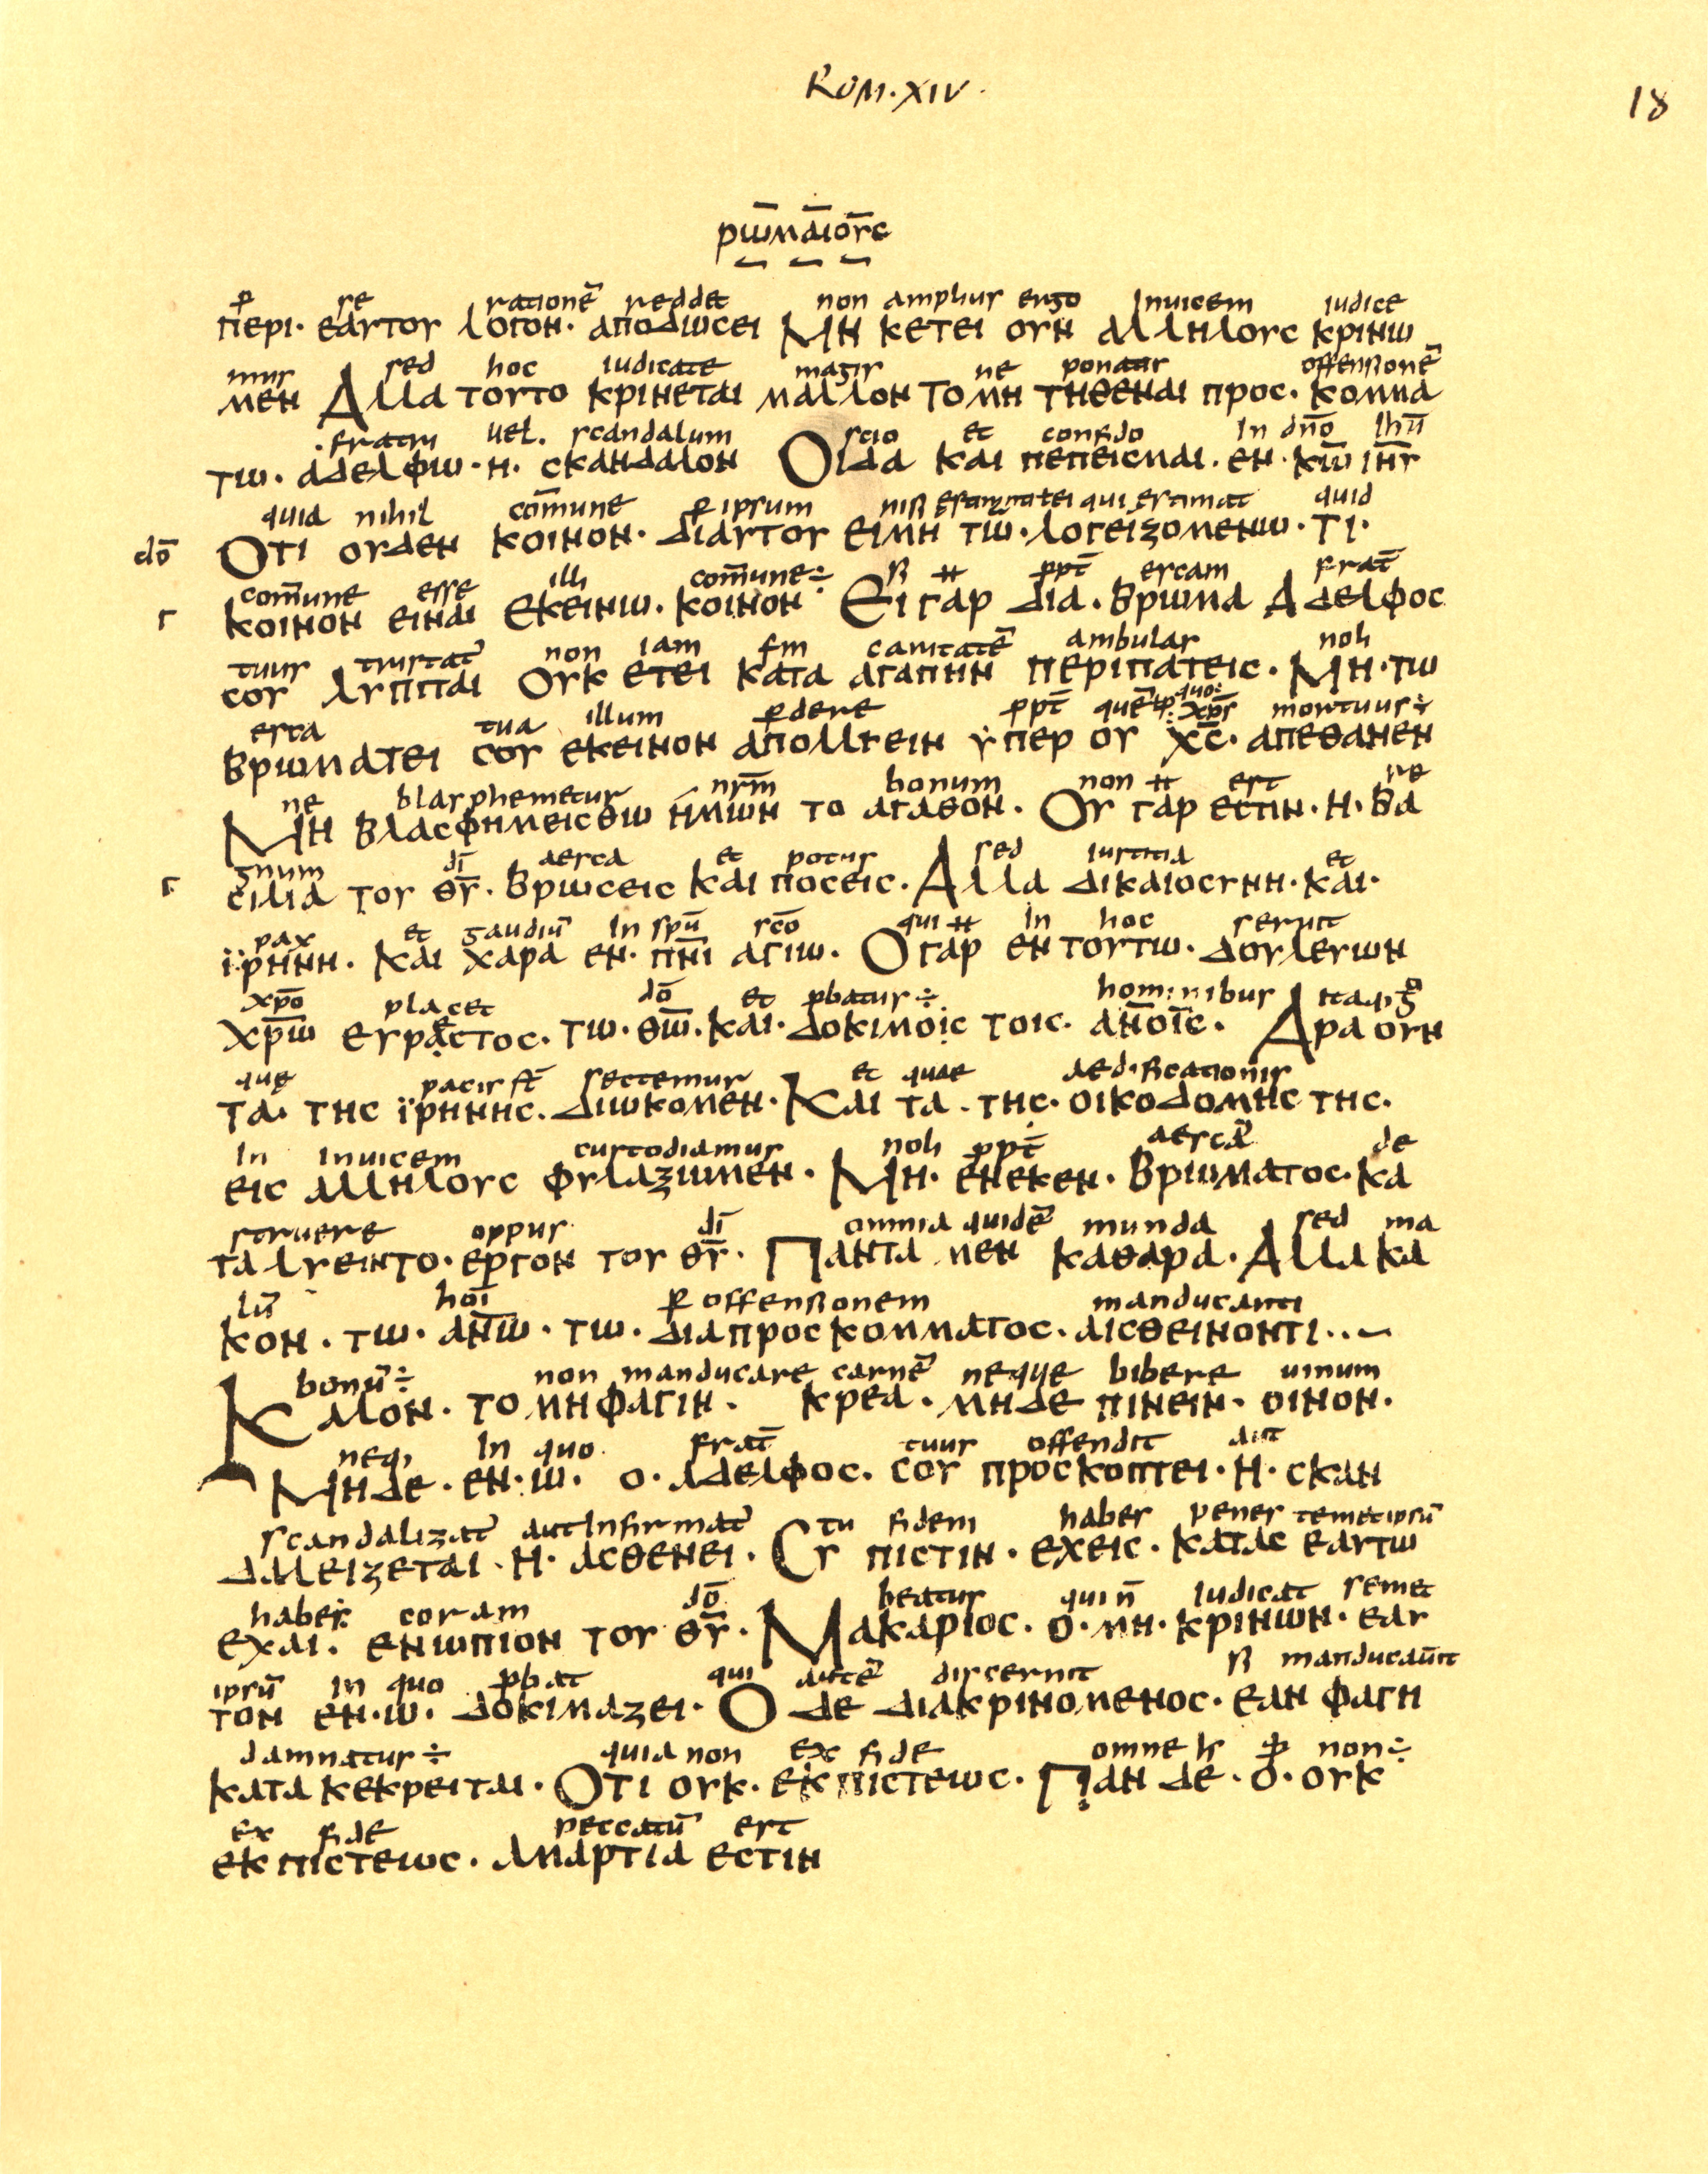 ROM. XIV.
18
ρω̄μαῑοῡς
ꝑ re rationē reddet non amplius ergo Inuicem iudice
περι· εαυτου λογον· αποδωσει Μη κετει ουν αλληλους κρινω
mur sed hoc iudicate magis ne ponatur offensionē
μεν Αλλα τουτο κρινεται μαλλον Το μη τηθεναι προς· κομμα
·fratri uel· scandalum scio et confido In dn̄o ihū
τω· αδελφω·η· σκανδαλον Οιδα και πεπεισμαι· εν·κ̄ω̄ ῑη̄ῡ
quia nihil com̄une ꝑ ipsum nisi qui estimat quid
do̅ Οτι ουδεν κοινον· διαυτου ειμη τω·λογειζομενω·τι·
com̄une esse illi com̄une÷ si ᚔ ꝓpt̄ escam frat̄
Γ κοινον ειναι εκεινω· κοινον Ει γαρ δια·βρωμα Αδελφος
tuus tristat̄ non iam sm̄ caritatē ambulas noli
σου λυπιται Ουκ ετει κατα αγαπην περιπατεις· Μη·τω
esca tua illum ꝑdere ꝓpt̄ quē xp̄s mortuus÷
βρωματει σου εκεινον απολλυειν ὑπερ ου χ̄ς̄· απεθανεν
ne blasphemetur nr̄m bonum non ᚔ est re
Μη βλασφημεισθω ἡμων το αγαθον· Ου γαρ εστιν·η·βα
gnum dī aesca et potus sed iustitia et
Γ σιλια του θ̄ῡ· βρωσεις και ποσεις· Αλλα δικαιοσυνη·και·
pax et gaudiū In spū sc̄o qui ᚔ In hoc seruit
ϊρηνη· Και χαρα εν· π̄ν̄ῑ αγιω· Ο γαρ εν τουτω· δουλευων
xp̄o placet do̅ et ꝓbatus÷ hominibus itaq; g̊
χρ̄ω̄ ευραεστος· τω·θ̄ω̄·και·δοκιμοις τοις· ᾱν̄ο̄ῑς̄· Αρα ουν
quę pacis st̄ sectemur et quae aedificationis
τα· της ϊρηνης· διωκομεν·Και τα·της·οικοδομης της·
In inuicem custodiamus noli ꝓpt̄ aescā de
εις αλληλους φυλαζωμεν· Μη· ενεκεν· βρωματος·κα
struere oppus dī omnia quidē munda sed ma
ταλυειντο·εργον του θ̄ῡ· Παντα μεν καθαρα·Αλλα κα
lū hoī ꝑ offensionem manducanti
κον·τω·ᾱν̄ω̄·τω·διαπροσκομματος·αισθεινοντι··~
bonū÷ non manducare carnē neque bibere uinum
Καλον·το μηφαγιν· κρεα·μηδε πινειν·οινον·
neq; In quo frat̄ tuus offendit aut
Μηδε·εν·ω· ο·αδελφος· σου προσκοπτει·η·σκαν
scandalizat̄ aut Infirmat̄ tu fidem habes penes temetipsū
δαλειζεται·η·ασθενει· Συ πιστιν·εχεις·κατας εαυτω
habes coram do̅ beatus qui n̄ Iudicat semet
εχαι·ενωπιον του θ̄ῡ· Μακαριος·ο·μη·κρινων·εαυ
ipsū in quo ꝓbat qui autē discernit si manducaūit
τον εν·ω·δοκιμαζει·Ο δε διακρινομενος·εαν φαγη
damnatus÷ quia non ex fide omne h ꝙ non÷
κατα κεκρειται·Οτι ουκ·εκ πιστεως·Παν δε·ο·ουκ
ex fide peccatū est
εκ πιστεως·Αμαρτια εστιν